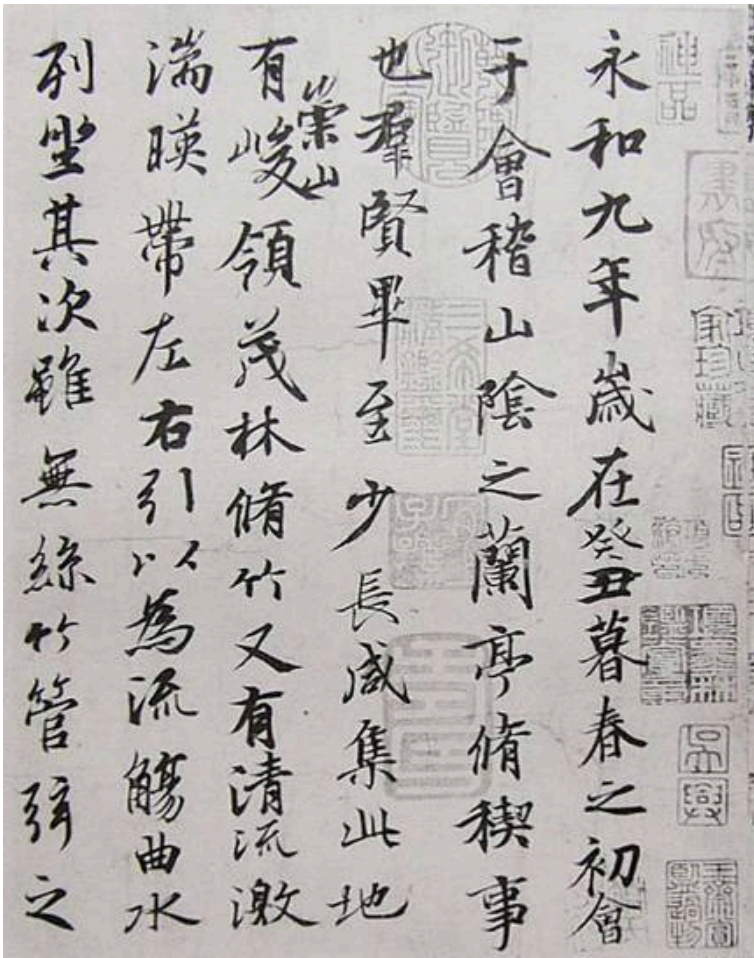 神品
書府
吳興
永和九年歲在癸丑暮春之初會
于會稽山陰之蘭亭脩稧事
也羣賢畢至少長咸集此地
有崇山峻領茂林脩竹又有清流激
湍暎帶左右引以為流觴曲水
列坐其次雖無絲竹管弦之